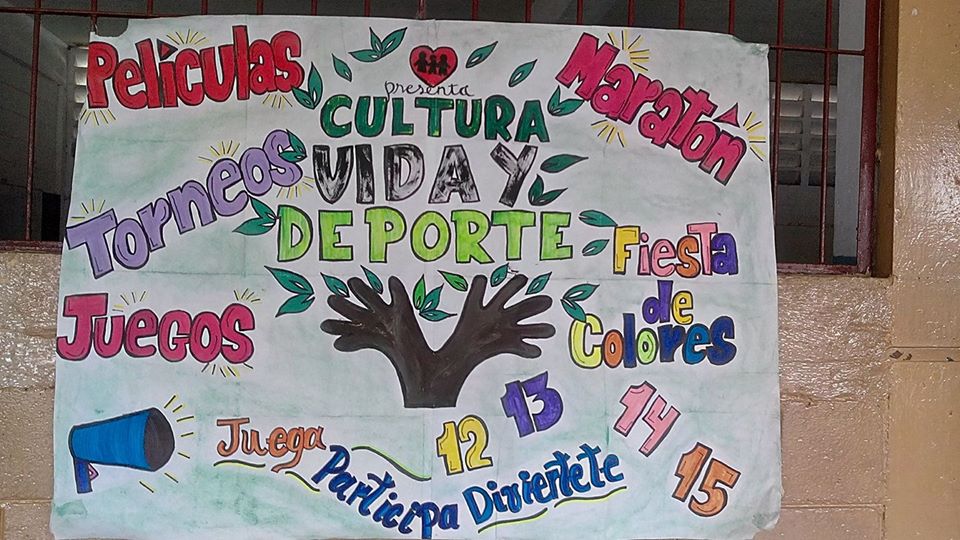 Películas
presenta
CULTURA
VIDA Y
DEPORTE
Maratón
Torneos
Fiesta
de
Colores
Juegos
12 13 14 15
Juega
Participa
Diviertete